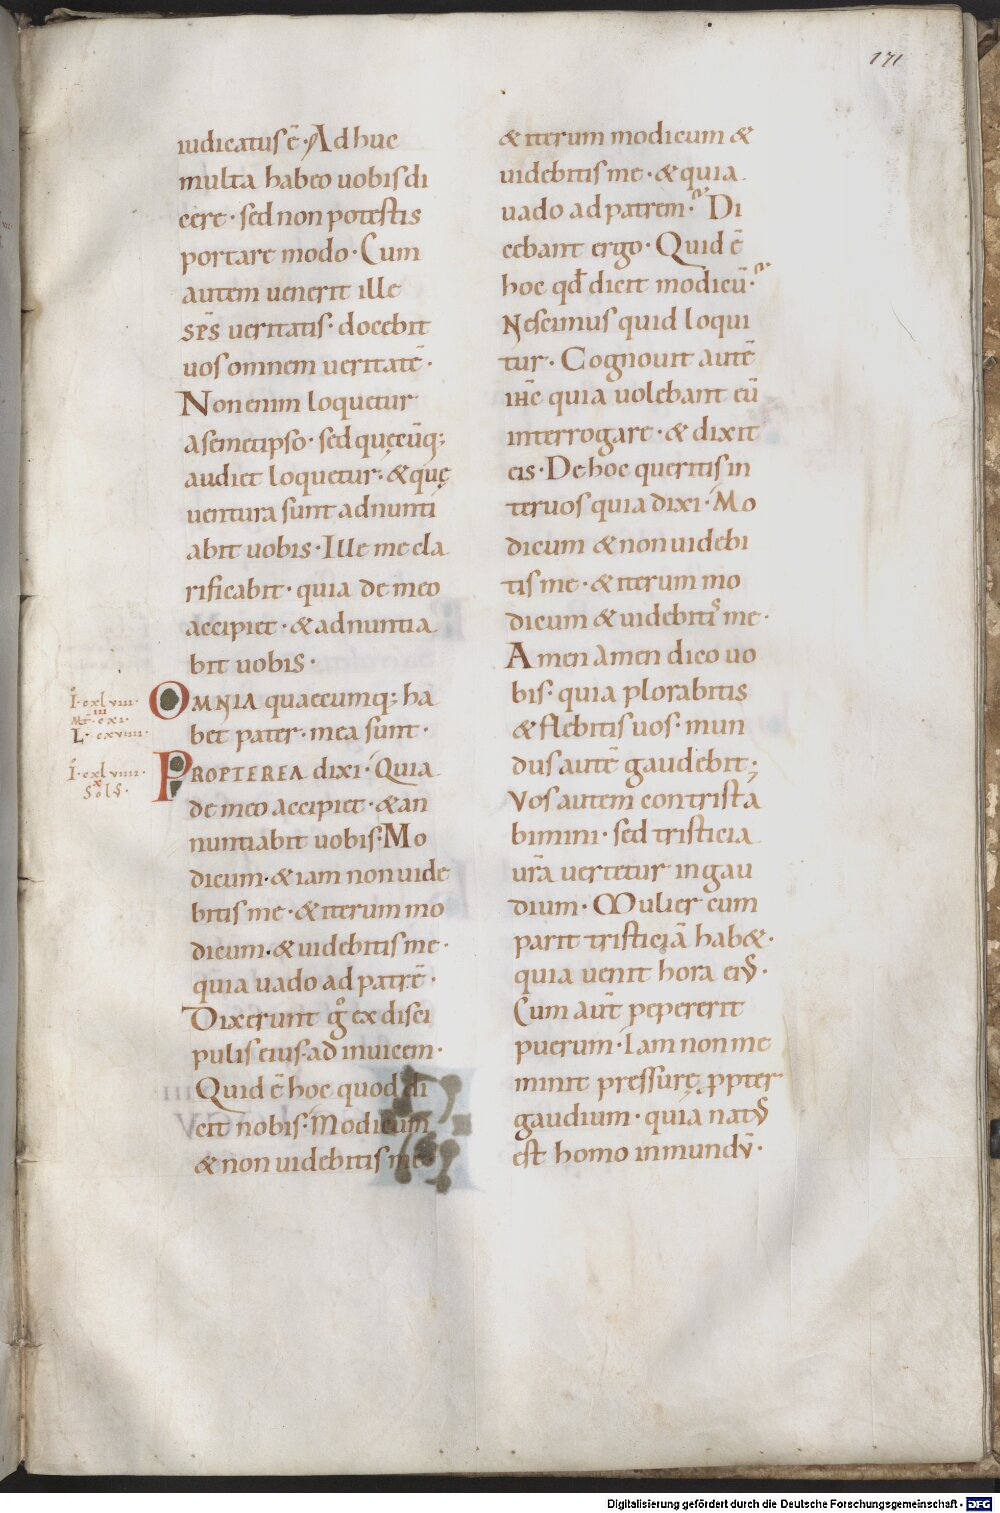 171
iudicatus ē · Ad huc
multa habeo uobis di
cere · sed non potestis
portare modo · Cum
autem uenerit ille
sp̄s ueritatis · docebit
uos omnem ueritatē ·
Non enim loquetur
a semetipso · sed quęcūq;
audiet loquetur · & quę
uentura sunt adnunti
abit uobis · Ille me cla
rificabit · quia de meo
accipiet · & adnuntia
bit uobis ·
I · cxlviii ·
Mt · cxi ·
L · cxviiii ·
OMNIA quaecumq; ha
bet pater · mea sunt ·
I · cxlviiii ·
PROPTEREA dixi · Quia
de meo accipiet · & an
nuntiabit uobis · Mo
dicum · & iam non uide
bitis me · & iterum mo
dicum · & uidebitis me ·
quia uado ad patrē ·
Dixerunt gͦ ex disci
pulis eius · ad inuicem ·
Quid ē hoc quod di
cit nobis · Modicum
& non uidebitis me
& iterum modicum &
uidebitis me · & quia
uado ad patrem · Di
cebant ergo · Quid ē
hoc qd̄ dicit modicū ·
Nescimus quid loqui
tur · Cognouit autē
ihc̄ quia uolebant eū
interrogare · & dixit
eis · De hoc queritis in
ter uos quia dixi · Mo
dicum & non uidebi
tis me · & iterum mo
dicum & uidebitis me ·
Amen amen dico uo
bis · quia plorabitis
& flebitis uos · mun
dus autē gaudebit ;
Vos autem contrista
bimini · sed tristicia
ur̄a uertetur in gau
dium · Mulier cum
parit tristiciā hab& ·
quia uenit hora eiꝰ ·
Cum aut̄ pepererit
puerum · Iam non me
minit pressurę ꝓpter
gaudium · quia natꝰ
est homo in mundū ·
Digitalisierung gefördert durch die Deutsche Forschungsgemeinschaft · DFG